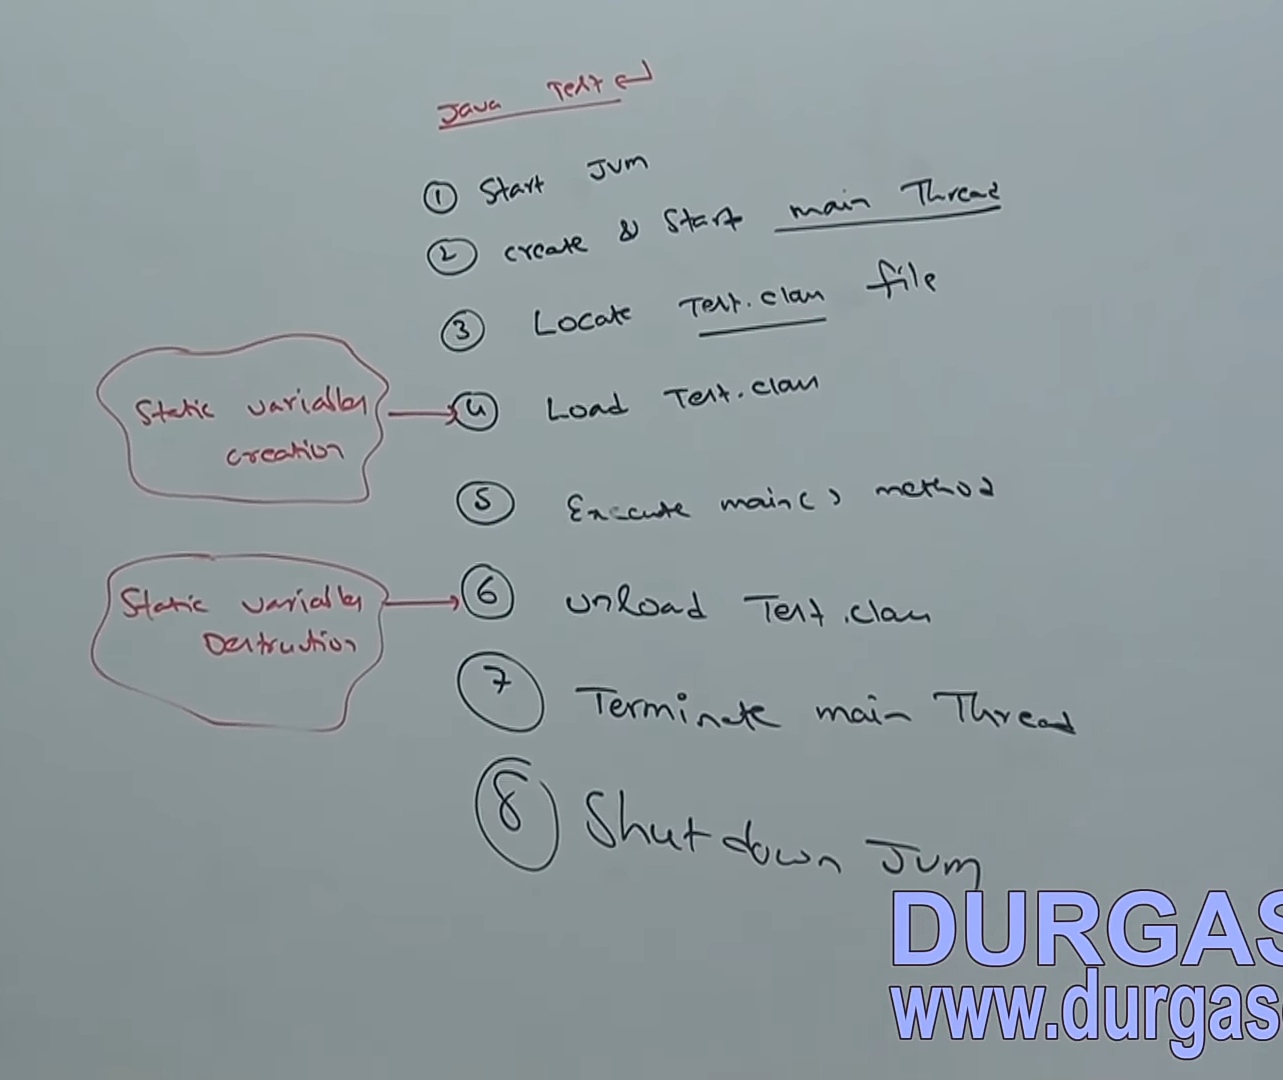 Java Test ↵
① Start JVM
② create & Start main Thread
③ Locate Test.class file
Static variables
creation
④ Load Test.class
⑤ Execute main() method
Static variables
Destruction
⑥ unload Test.class
⑦ Terminate main Thread
⑧ Shutdown JVM
DURGAS
www.durgas